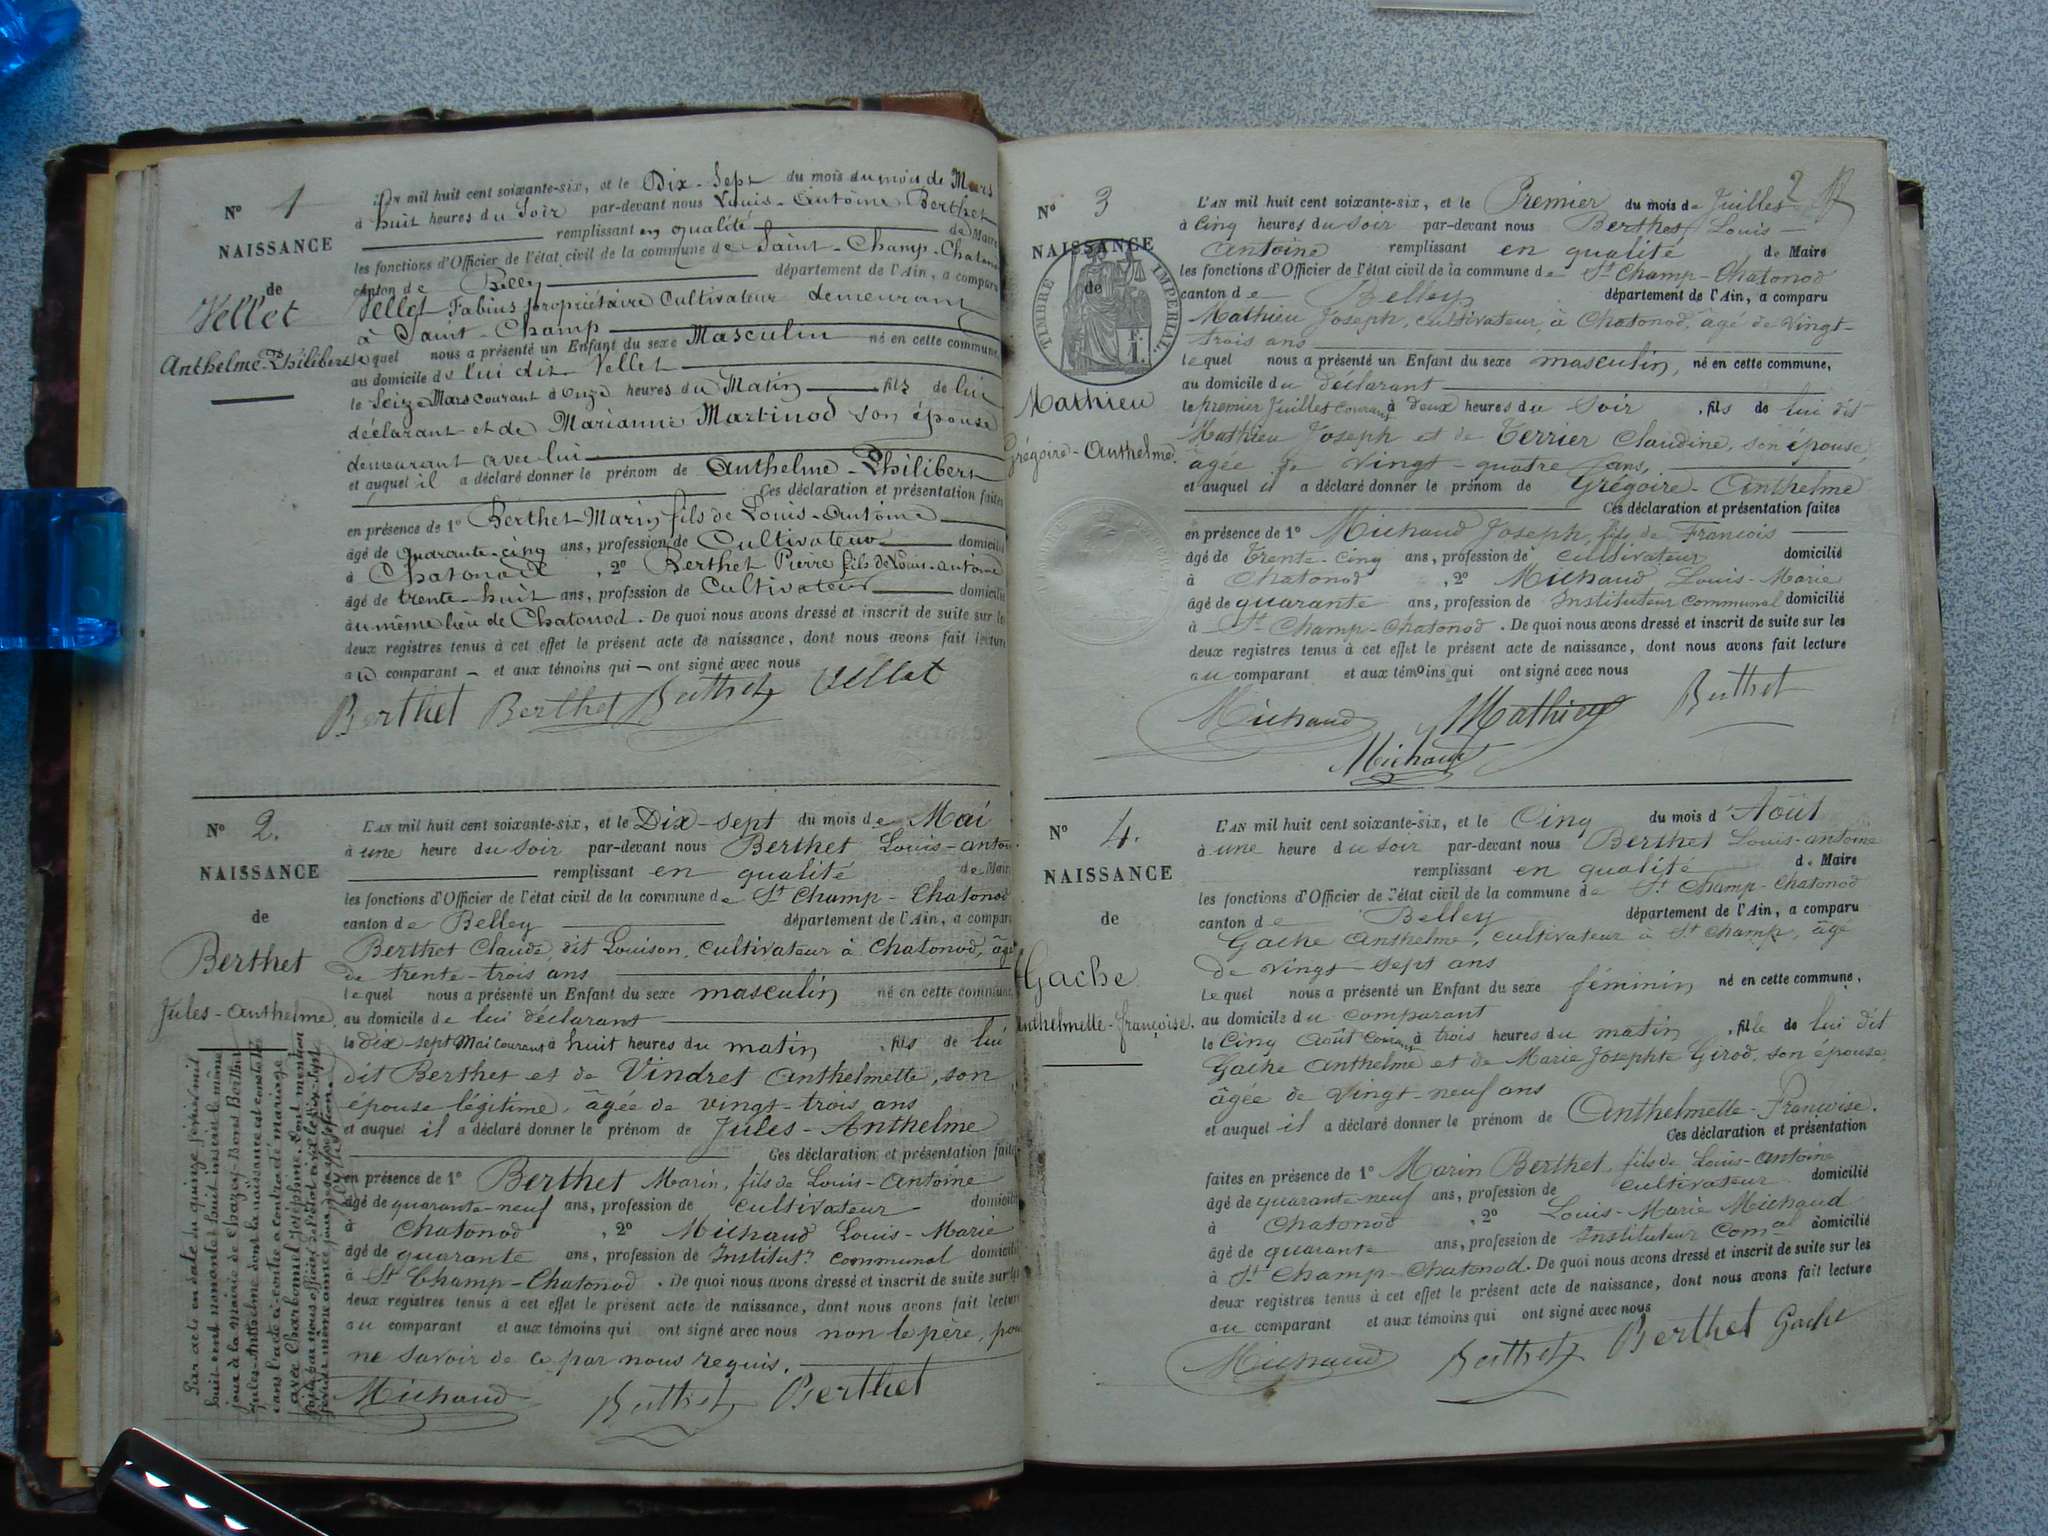 N° 1
NAISSANCE
de
Vellet
Anthelme-Philibert
L'AN mil huit cent soixante-six, et le Dix-Sept du mois du mois de Mars
à huit heures du Soir par-devant nous Louis-Antoine Berthet
remplissant en qualité de Maire
les fonctions d'Officier de l'état civil de la commune de Saint-Champ-Chatonod
canton de Belley département de l'Ain, a comparu
Vellet Fabius propriétaire Cultivateur demeurant
à Saint-Champ
lequel nous a présenté un Enfant du sexe Masculin né en cette commune,
au domicile de lui dit Vellet
le Seize Mars courant à Onze heures du Matin fils de lui
déclarant et de Marianne Martinod son épouse
demeurant avec lui
et auquel il a déclaré donner le prénom de Anthelme-Philibert
Ces déclaration et présentation faites
en présence de 1° Berthet Marin fils de Louis-Antoine
âgé de quarante-cinq ans, profession de Cultivateur domicilié
à Chatonod , 2° Berthet Pierre fils de Louis-Antoine
âgé de trente-huit ans, profession de Cultivateur domicilié
au même lieu de Chatonod. De quoi nous avons dressé et inscrit de suite sur les
deux registres tenus à cet effet le présent acte de naissance, dont nous avons fait lecture
au comparant et aux témoins qui ont signé avec nous
Berthet Berthet Berthet Vellet
N° 2.
NAISSANCE
de
Berthet
Jules-Anthelme.
Par acte en date du quinze février mil
huit cent nonante huit inséré le même
jour à la mairie de Chazey-Bons Berthet
Jules-Anthelme dont la naissance est constatée
dans l'acte ci-contre a contracté mariage
avec Charbonnet Joséphine. Dont mention
faite par nous officier de l'état civil le dix-sept
L'AN mil huit cent soixante-six, et le Dix-sept du mois de Mai
à une heure du soir par-devant nous Berthet Louis-antoine
remplissant en qualité de Maire
les fonctions d'Officier de l'état civil de la commune de St Champ-Chatonod
canton de Belley département de l'Ain, a comparu
Berthet Claude, dit Louison, cultivateur à Chatonod, âgé
de trente-trois ans
lequel nous a présenté un Enfant du sexe masculin né en cette commune,
au domicile de lui déclarant
le dix-sept Mai courant à huit heures du matin , fils de lui
dit Berthet et de Vindret Anthelmette, son
épouse légitime, âgée de vingt-trois ans
et auquel il a déclaré donner le prénom de Jules-Anthelme
Ces déclaration et présentation faites
en présence de 1° Berthet Marin, fils de Louis-Antoine
âgé de quarante-neuf ans, profession de cultivateur domicilié
à Chatonod , 2° Michaud Louis-Marie
âgé de quarante ans, profession de Institutr communal domicilié
à St Champ-Chatonod. De quoi nous avons dressé et inscrit de suite sur les
deux registres tenus à cet effet le présent acte de naissance, dont nous avons fait lecture
au comparant et aux témoins qui ont signé avec nous non le père, pour
ne savoir de ce par nous requis.
Michaud Berthet Berthet
2
N° 3
NAISSANCE
de
TIMBRE IMPERIAL
1 F.
Mathieu
Grégoire-Anthelme.
L'AN mil huit cent soixante-six, et le Premier du mois de Juillet
à cinq heures du soir par-devant nous Berthet Louis-
Antoine remplissant en qualité de Maire
les fonctions d'Officier de l'état civil de la commune de St Champ-Chatonod
canton de Belley département de l'Ain, a comparu
Mathieu Joseph, cultivateur, à Chatonod, âgé de vingt-
trois ans
lequel nous a présenté un Enfant du sexe masculin, né en cette commune,
au domicile du déclarant
le premier Juillet courant à deux heures du soir , fils de lui dit
Mathieu Joseph et de Terrier Claudine, son épouse,
âgée de vingt-quatre ans,
et auquel il a déclaré donner le prénom de Grégoire-Anthelme
Ces déclaration et présentation faites
en présence de 1° Michaud Joseph, fils de François
âgé de Trente-cinq ans, profession de cultivateur domicilié
à Chatonod , 2° Michaud Louis-Marie
âgé de quarante ans, profession de Instituteur communal domicilié
à St Champ-Chatonod. De quoi nous avons dressé et inscrit de suite sur les
deux registres tenus à cet effet le présent acte de naissance, dont nous avons fait lecture
au comparant et aux témoins qui ont signé avec nous
Michaud Mathieu Berthet
Michaud
N° 4.
NAISSANCE
de
Gache
Anthelmette-françoise.
L'AN mil huit cent soixante-six, et le Cinq du mois d'Août
à une heure du soir par-devant nous Berthet Louis-antoine
remplissant en qualité de Maire
les fonctions d'Officier de l'état civil de la commune de St Champ-Chatonod
canton de Belley département de l'Ain, a comparu
Gache Anthelme, cultivateur à St Champ, âgé
de vingt-sept ans
lequel nous a présenté un Enfant du sexe féminin né en cette commune,
au domicile du comparant
le cinq Août courant à trois heures du matin , fille de lui dit
Gache Anthelme et de Marie Josephte Girod, son épouse,
âgée de vingt-neuf ans
et auquel il a déclaré donner le prénom de Anthelmette-Françoise.
Ces déclaration et présentation
faites en présence de 1° Marin Berthet, fils de Louis-Antoine
âgé de quarante-neuf ans, profession de cultivateur domicilié
à Chatonod , 2° Louis-Marie Michaud
âgé de quarante ans, profession de Instituteur Comal domicilié
à St Champ-Chatonod. De quoi nous avons dressé et inscrit de suite sur les
deux registres tenus à cet effet le présent acte de naissance, dont nous avons fait lecture
au comparant et aux témoins qui ont signé avec nous
Michaud Berthet Berthet Gache